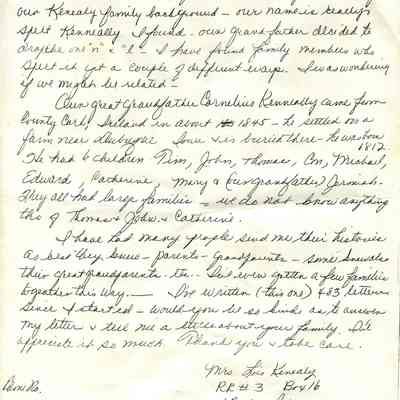 our Kenealy family background - our name is really
spelt Kenneally I found - our grandfather decided to
drop the one "n" & "l" - I have found family members who
spelt it yet a couple of different ways. I was wondering
if we might be related -
Our great Grandfather Cornelius Kenneally came from
County Cork, Ireland in about 1845 - he settled on a
farm near Dubuque Iowa & is buried there - he was born
1812.
He had 6 children Tim, John, Thomas, Con, Michael,
Edward, Catherine, Mary & (our grandfather) Jermiah.
They all had large families - we do not know anything
tho of Thomas & John & Catherine.
I have had many people send me their histories
as best they know - parents - grandparents - some know also
their great grandparents etc. I've even gotten a few families
together this way. I've written (this one) 483 letters
since I started - would you be so kind as to answer
my letter & tell me a little about your family. I'll
appreciate it so much. Thank you & take care.
Mrs. Lois Kenealy
R.R. # 3 Box 16